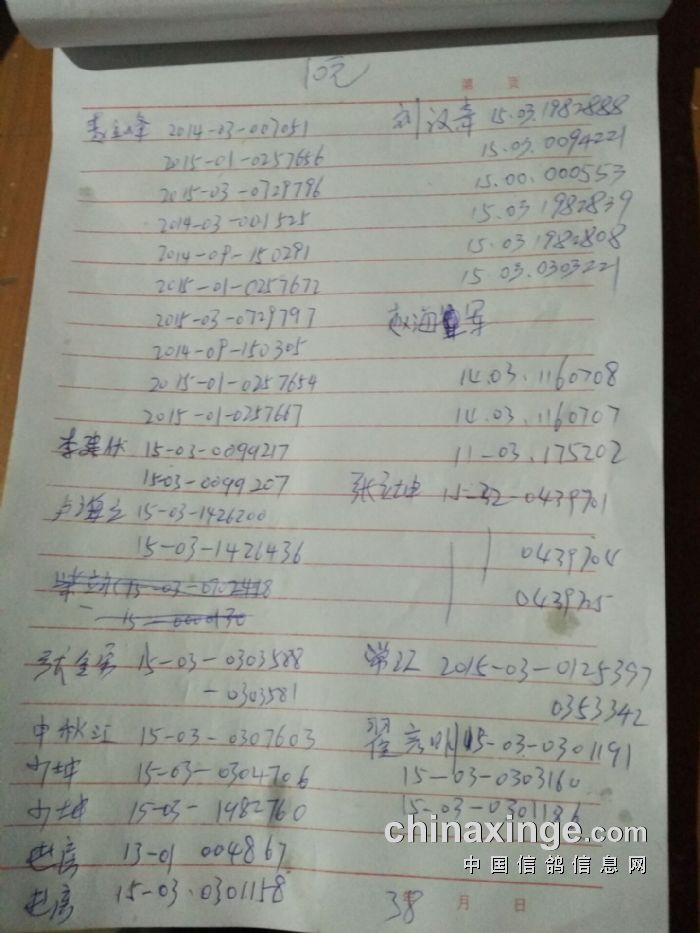 10元
第 页
2014-03-007051
2015-01-0257656
2015-03-0729796
2014-03-001525
2014-09-150291
2015-01-0257672
2015-03-0729797
2014-09-150305
2015-01-0257654
2015-01-0257667
李建伏 15-03-0099217
15-03-0099207
卢海 15-03-1426200
15-03-1426436
15-03-0702418
15-000130
张金 15-03-0303588
-0303581
中秋江 15-03-0307603
15-03-0304706
15-03-1982760
13-01 004867
15-03.0301158
刘汉 15.03.1982888
15.03.0094221
15.00.000553
15.03 1982839
15.03 1982808
15.03.0303221
赵海军
14.03.1160708
14.03.1160707
11-03.175202
张 15-32-0439701
0439704
0439705
2015-03-0125397
0353342
翟亮明 15-03-0301191
15-03-0303160
15-03-0301186
chinaxinge.com
中国信鸽信息网
38 月 日